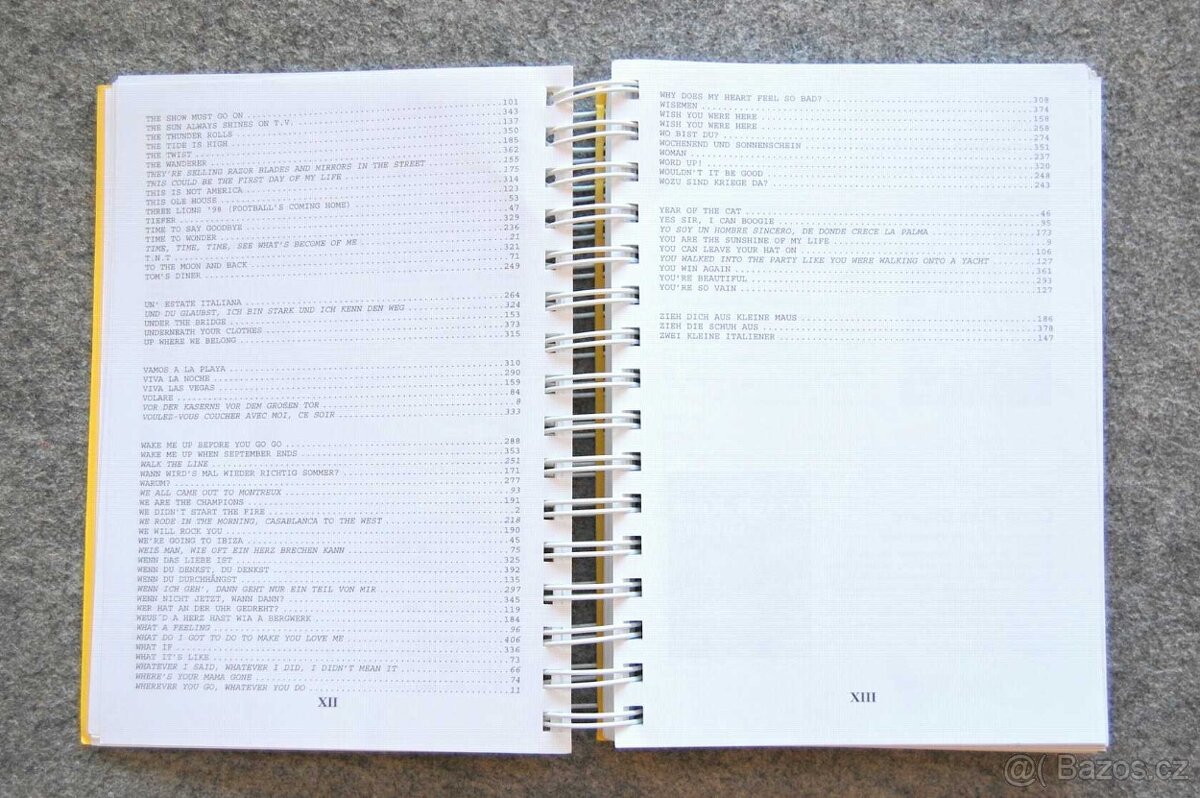 THE SHOW MUST GO ON ... 101
THE SUN ALWAYS SHINES ON T.V. ... 343
THE THUNDER ROLLS ... 137
THE TIDE IS HIGH ... 350
THE TWIST ... 185
THE WANDERER ... 362
THEY'RE SELLING RAZOR BLADES AND MIRRORS IN THE STREET ... 255
THIS COULD BE THE FIRST DAY OF MY LIFE ... 175
THIS IS NOT AMERICA ... 314
THIS OLE HOUSE ... 123
THREE LIONS '98 (FOOTBALL'S COMING HOME) ... 53
TIEFER ... 47
TIME TO SAY GOODBYE ... 329
TIME TO WONDER ... 236
TIME, TIME, TIME, SEE WHAT'S BECOME OF ME ... 21
T.N.T ... 321
TO THE MOON AND BACK ... 71
TOM'S DINER ... 249
UN' ESTATE ITALIANA ... 264
UND DU GLAUBST, ICH BIN STARK UND ICH KENN DEN WEG ... 324
UNDER THE BRIDGE ... 153
UNDERNEATH YOUR CLOTHES ... 373
UP WHERE WE BELONG ... 315
VAMOS A LA PLAYA ... 310
VIVA LA NOCHE ... 290
VIVA LAS VEGAS ... 159
VOLARE ... 84
VOR DER KASERNE VOR DEM GROSEN TOR ... 8
VOULEZ-VOUS COUCHER AVEC MOI, CE SOIR ... 333
WAKE ME UP BEFORE YOU GO GO ... 288
WAKE ME UP WHEN SEPTEMBER ENDS ... 353
WALK THE LINE ... 251
WANN WIRD'S MAL WIEDER RICHTIG SOMMER? ... 171
WARUM? ... 277
WE ALL CAME OUT TO MONTREUX ... 93
WE ARE THE CHAMPIONS ... 191
WE DIDN'T START THE FIRE ... 2
WE RODE IN THE MORNING, CASABLANCA TO THE WEST ... 218
WE WILL ROCK YOU ... 190
WE'RE GOING TO IBIZA ... 45
WEIS MAN, WIE OFT EIN HERZ BRECHEN KANN ... 75
WENN DAS LIEBE IST ... 325
WENN DU DENKST, DU DENKST ... 392
WENN DU DURCHHÄNGST ... 135
WENN ICH GEH', DANN GEHT NUR EIN TEIL VON MIR ... 297
WENN NICHT JETZT, WANN DANN? ... 345
WER HAT AN DER UHR GEDREHT? ... 119
WEUS'D A HERZ HAST WIA A BERGWERK ... 184
WHAT A FEELING ... 96
WHAT DO I GOT TO DO TO MAKE YOU LOVE ME ... 406
WHAT IF ... 336
WHAT IT'S LIKE ... 73
WHATEVER I SAID, WHATEVER I DID, I DIDN'T MEAN IT ... 66
WHERE'S YOUR MAMA GONE ... 74
WHEREVER YOU GO, WHATEVER YOU DO ... 11
XII
WHY DOES MY HEART FEEL SO BAD? ... 308
WISEMEN ... 374
WISH YOU WERE HERE ... 158
WISH YOU WERE HERE ... 258
WO BIST DU? ... 274
WOCHENEND UND SONNENSCHEIN ... 351
WOMAN ... 237
WORD UP! ... 320
WOULDN'T IT BE GOOD ... 248
WOZU SIND KRIEGE DA? ... 243
YEAR OF THE CAT ... 46
YES SIR, I CAN BOOGIE ... 95
YO SOY UN HOMBRE SINCERO, DE DONDE CRECE LA PALMA ... 173
YOU ARE THE SUNSHINE OF MY LIFE ... 9
YOU CAN LEAVE YOUR HAT ON ... 106
YOU WALKED INTO THE PARTY LIKE YOU WERE WALKING ONTO A YACHT ... 127
YOU WIN AGAIN ... 361
YOU'RE BEAUTIFUL ... 293
YOU'RE SO VAIN ... 127
ZIEH DICH AUS KLEINE MAUS ... 186
ZIEH DIE SCHUH AUS ... 378
ZWEI KLEINE ITALIENER ... 147
XIII
@( Bazos.cz